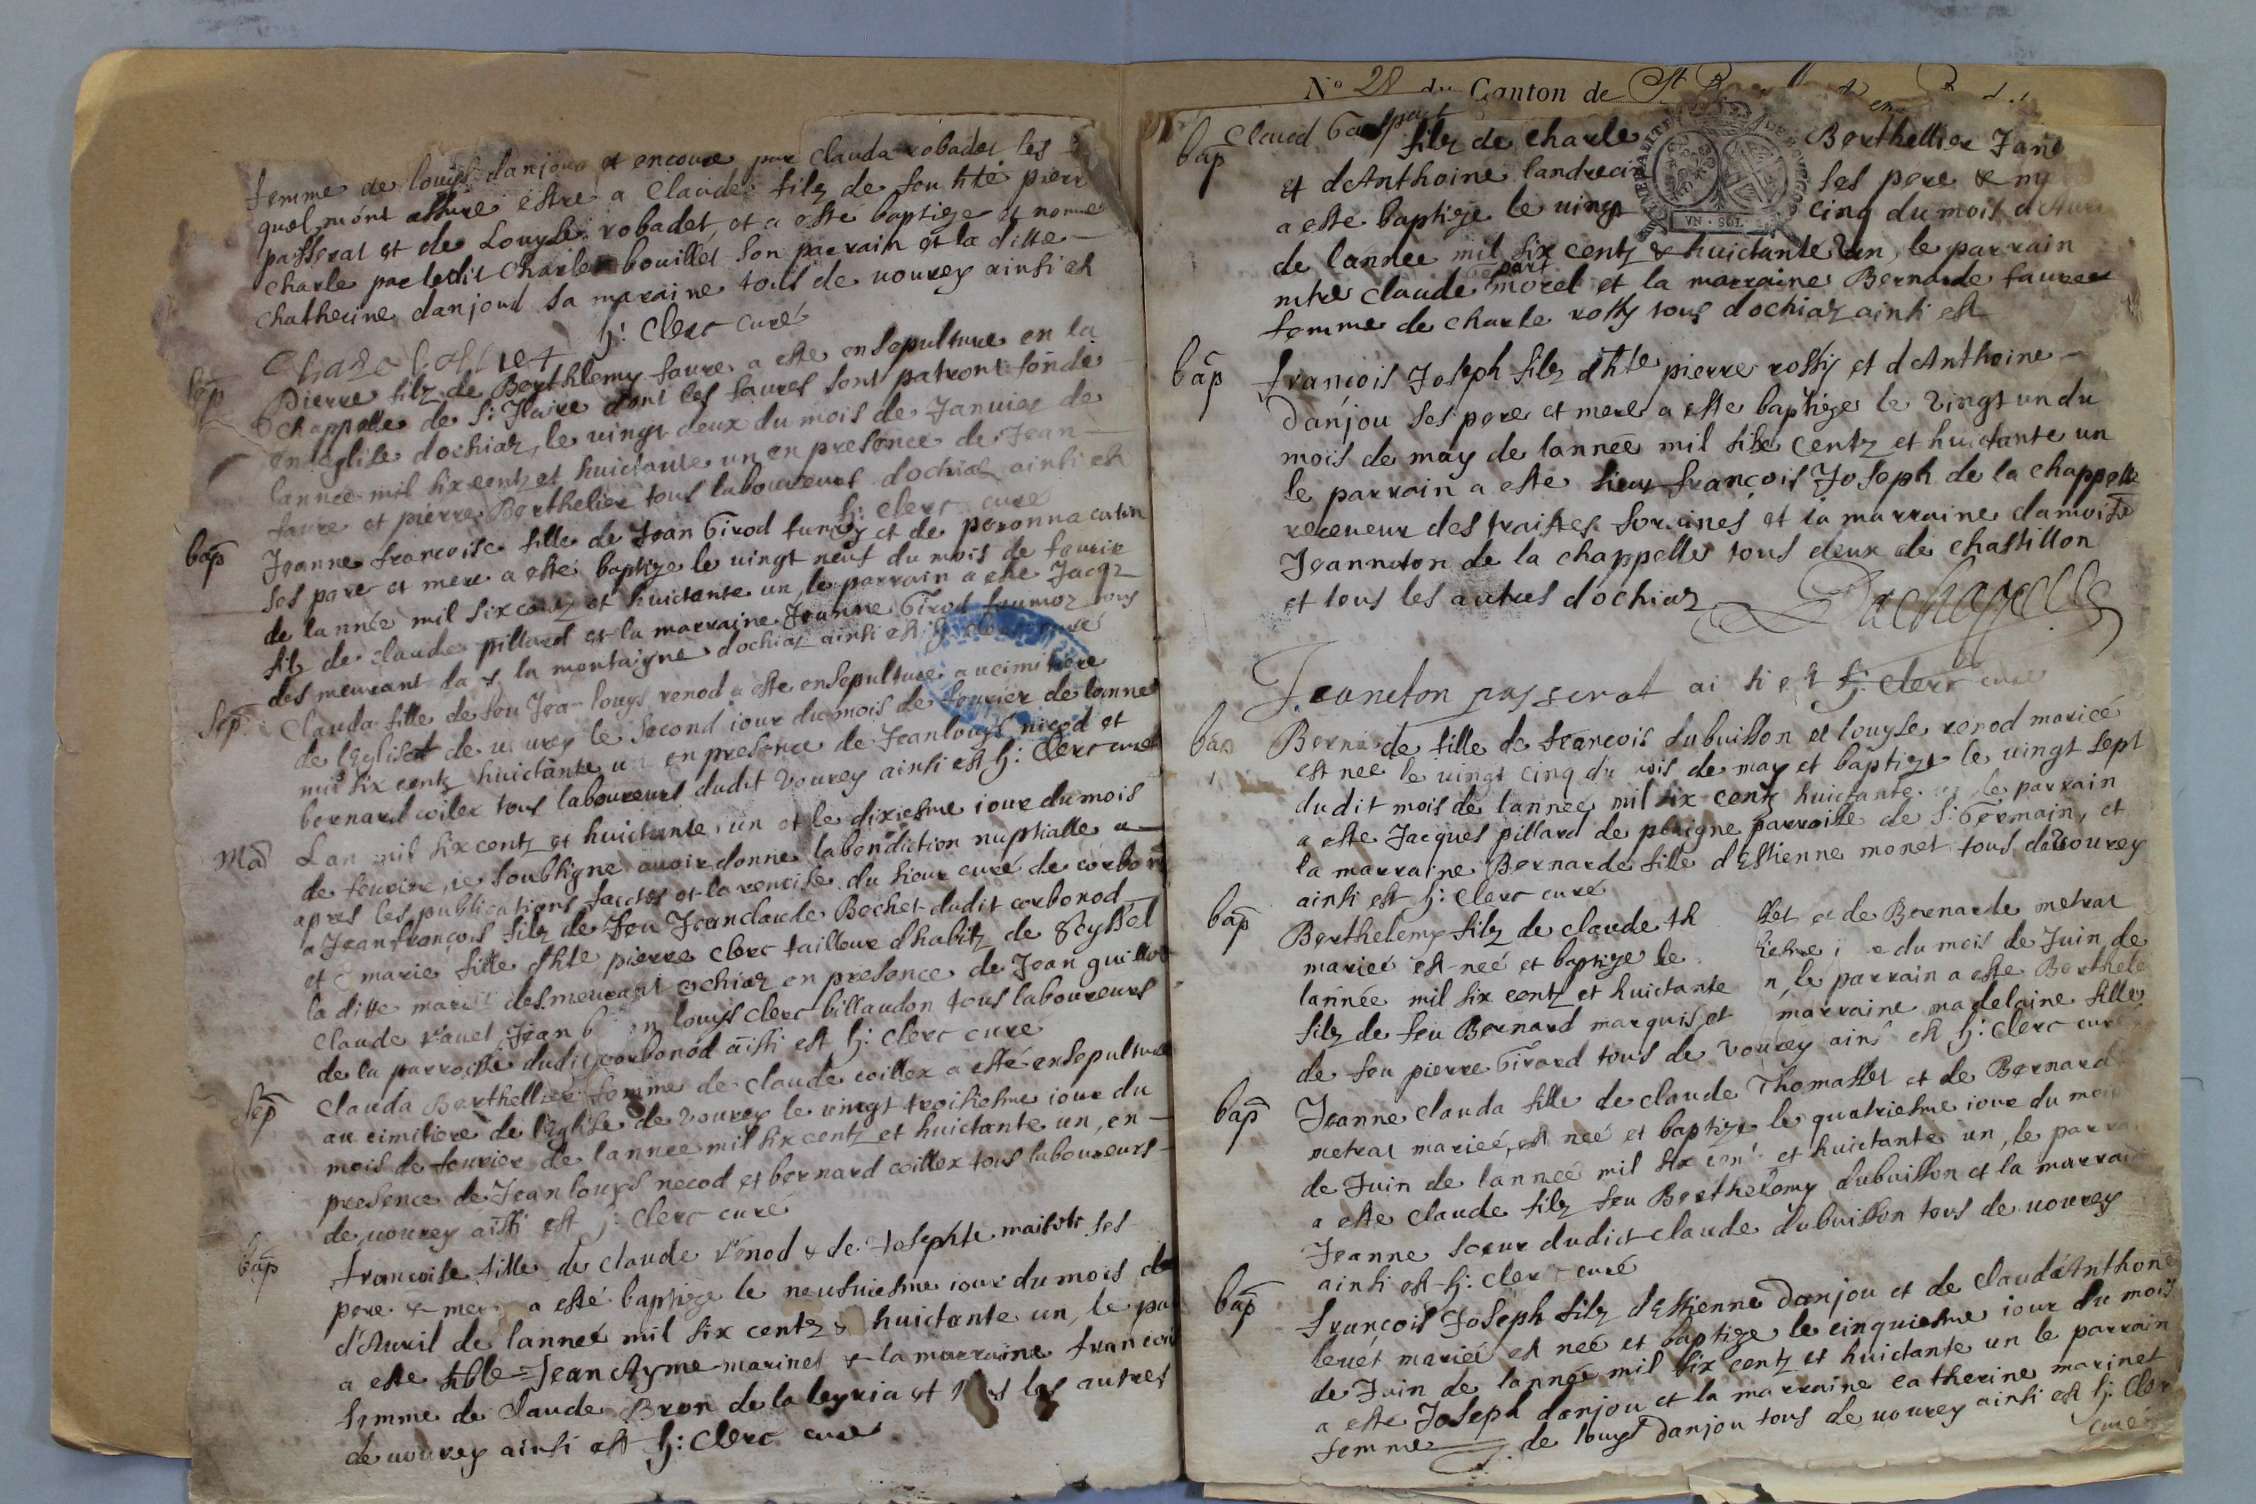 femme de louys danjoud et encoure par clauda robadet les
quel mont assure estre a Claude filz de feu hte pierr
passerat et de Louyse robadet, et a esté baptize et nomme
charle par ledit charle bouillet son parrain et la ditte
chatherine danjoud sa maraine tous de vourey ainsi est
h: Clerc curé
bap Pierre filz de Berthlemy faure a esté ensepulture en la
chappelle de st Ilaire dont les faures sont patront fonde
en leglise dochiaz, le vingt deux du mois de Janvier de
lannee mil six centz et huictante un en presence de Jean
faure et pierre Berthelier tous laboureurs dochiaz ainsi est
h: clerc curé
bap Jeanne francoise fille de Jean Girod et de peronna
ses pere et mere a esté baptize le vingt neuf du mois de
de lannée mil six centz et huictante un, le parrain a esté Jacqz
filz de claude pillard et la marraine Jeanne Girod tous
des meurant la montaigne dochiaz ainsi est h: clerc curé
sep Clauda fille de feu Jean louys renod a esté ensepulture au cimitiere
de leglise de vourey le second iour du mois de feurier de lannee
mil six centz huictante un en presence de Jean louys nicod et
bernard coilex tous laboureurs dudit vourey ainsi est h: Clerc curé
ma Lan mil six centz et huictante un et le dixiesme iour du mois
de feurier, ie soubsigne avoir donne la bendiction nuptialle a
apres les publications faictes et la remise du sieur curé de corbon
a Jean françois filz de feu Jean claude Bochet dudit corbonod
et marie fille dhte pierre clerc tailleur dhabitz de Seyssel
la ditte marie desmeurant ochiaz en presence de Jean guillot
Claude ravet Jean louys clerc billaudon tous laboureurs
de la parroisse dudit corbonod aisti est h: Clerc curé
sep Clauda Berthellier femme de claude coillex a esté ensepulture
au cimitiere de leglise de vourey le vingt troisiesme iour du
mois de feurier de lannee mil six centz et huictante un, en
presence de Jean louys necod et bernard coillex tous laboureurs
de vourey aisti est h: Clerc curé
bap francoise fille de claude renod & de Josephte ses
pere & mere a esté baptize le neufuiesme iour du mois de
d'Auril de lanneé mil six centz & huictante un, le pa
a este hble Jean Ayme marinet & la marraine francoi
femme de Claude Bron de la leyria et tous les autres
de vourey ainsi est h: Clerc curé
No 28 du Canton de St
bap Claud Gaspart filz de charle Berthellier Jane
et dAnthoine landrecin ses pere & me
a esté baptize le vingt cinq du mois dAuri
de lannée mil six centz & huictante un, le parrain
mtre claude gaspart morel et la marraine Bernarde faure
femme de charle rossy tous dochiaz ainsi est
bap francois Joseph filz dhte pierre rossy et dAnthoine
Danjou ses pere et mere a este baptize le vingt un du
mois de may de lanneé mil sixe centz et huictante un
le parrain a este sieur françois Joseph de la chappelle
receveur des traittes foraines et la marraine damoise
Jeanneton de la chappelle tous deux de chastillon
et tous les autres dochiaz Delachapelle
Jeaneton passerat ainsi est h: clerc curé
bap Bernarde fille de francois dubuisson et louyse renod marieé
est nee le vingt cinq du mois de may et baptize le vingt sept
dudit mois de lanneé mil six centz huictante un le parrain
a este Jacques pillard de plaigne parroisse de st Germain, et
la marraine Bernarde fille d'Estienne monet tous de vourey
ainsi est h: Clerc curé
bap Berthelemy filz de claude et de Bernarde metrat
marieé est neé et baptize le du mois de Juin de
lannée mil six centz et huictante n, le parrain a este Berthele
filz de feu Bernard marquis et marraine madelaine fille
de feu pierre Girard tous de vourey ainsi est h: Clerc curé
bap Jeanne clauda fille de claude Thomasset et de Bernard
metrat marieé, est neé et baptize le quatriesme iour du mois
de Juin de lanneé mil six cent et huictante un, le parra
a este claude filz feu Berthelemy dubuisson et la marrai
Jeanne soeur dudict claude dubuisson tous de vourey
ainsi est h: Clerc curé
bap françois Joseph filz d'Estienne Danjou et de Clauda Anthone
levét marieé est neé et baptize le cinquiesme iour du mois
de Juin de lanneé mil six centz et huictante un le parrain
a este Joseph danjou et la marraine catherine marinet
femme de louys Danjou tous de vourey ainsi est h: Cler
curé